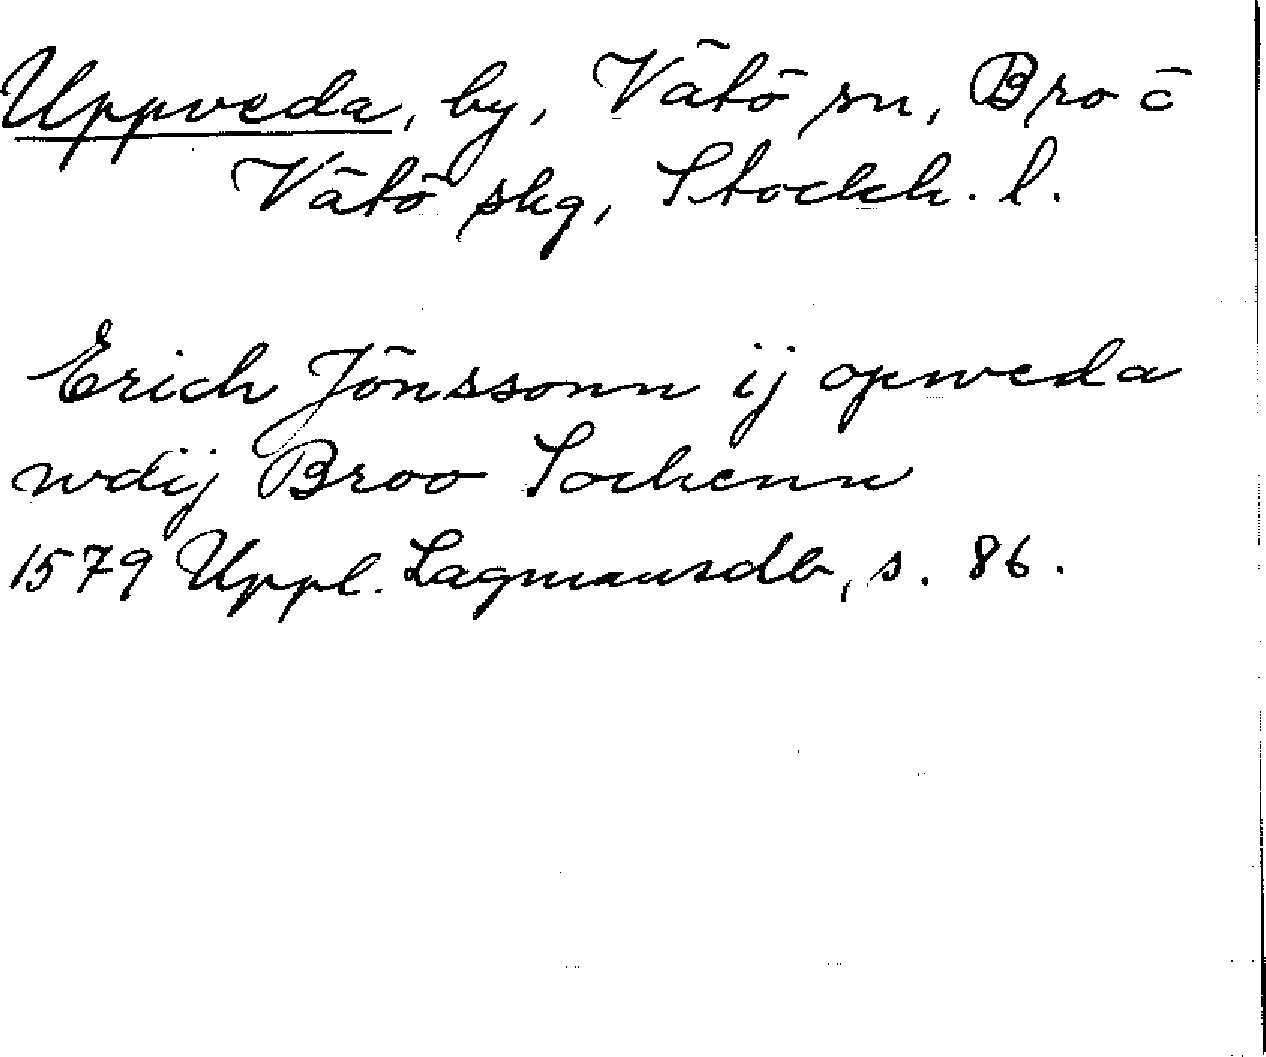 Uppveda, by, Vätö sn, Bro o
Vätö skg, Stockh. l.
Erich Jönssonn ij opweda
wdij Broo Sochenn
1579 Uppl. Lagmansdb, s. 86.